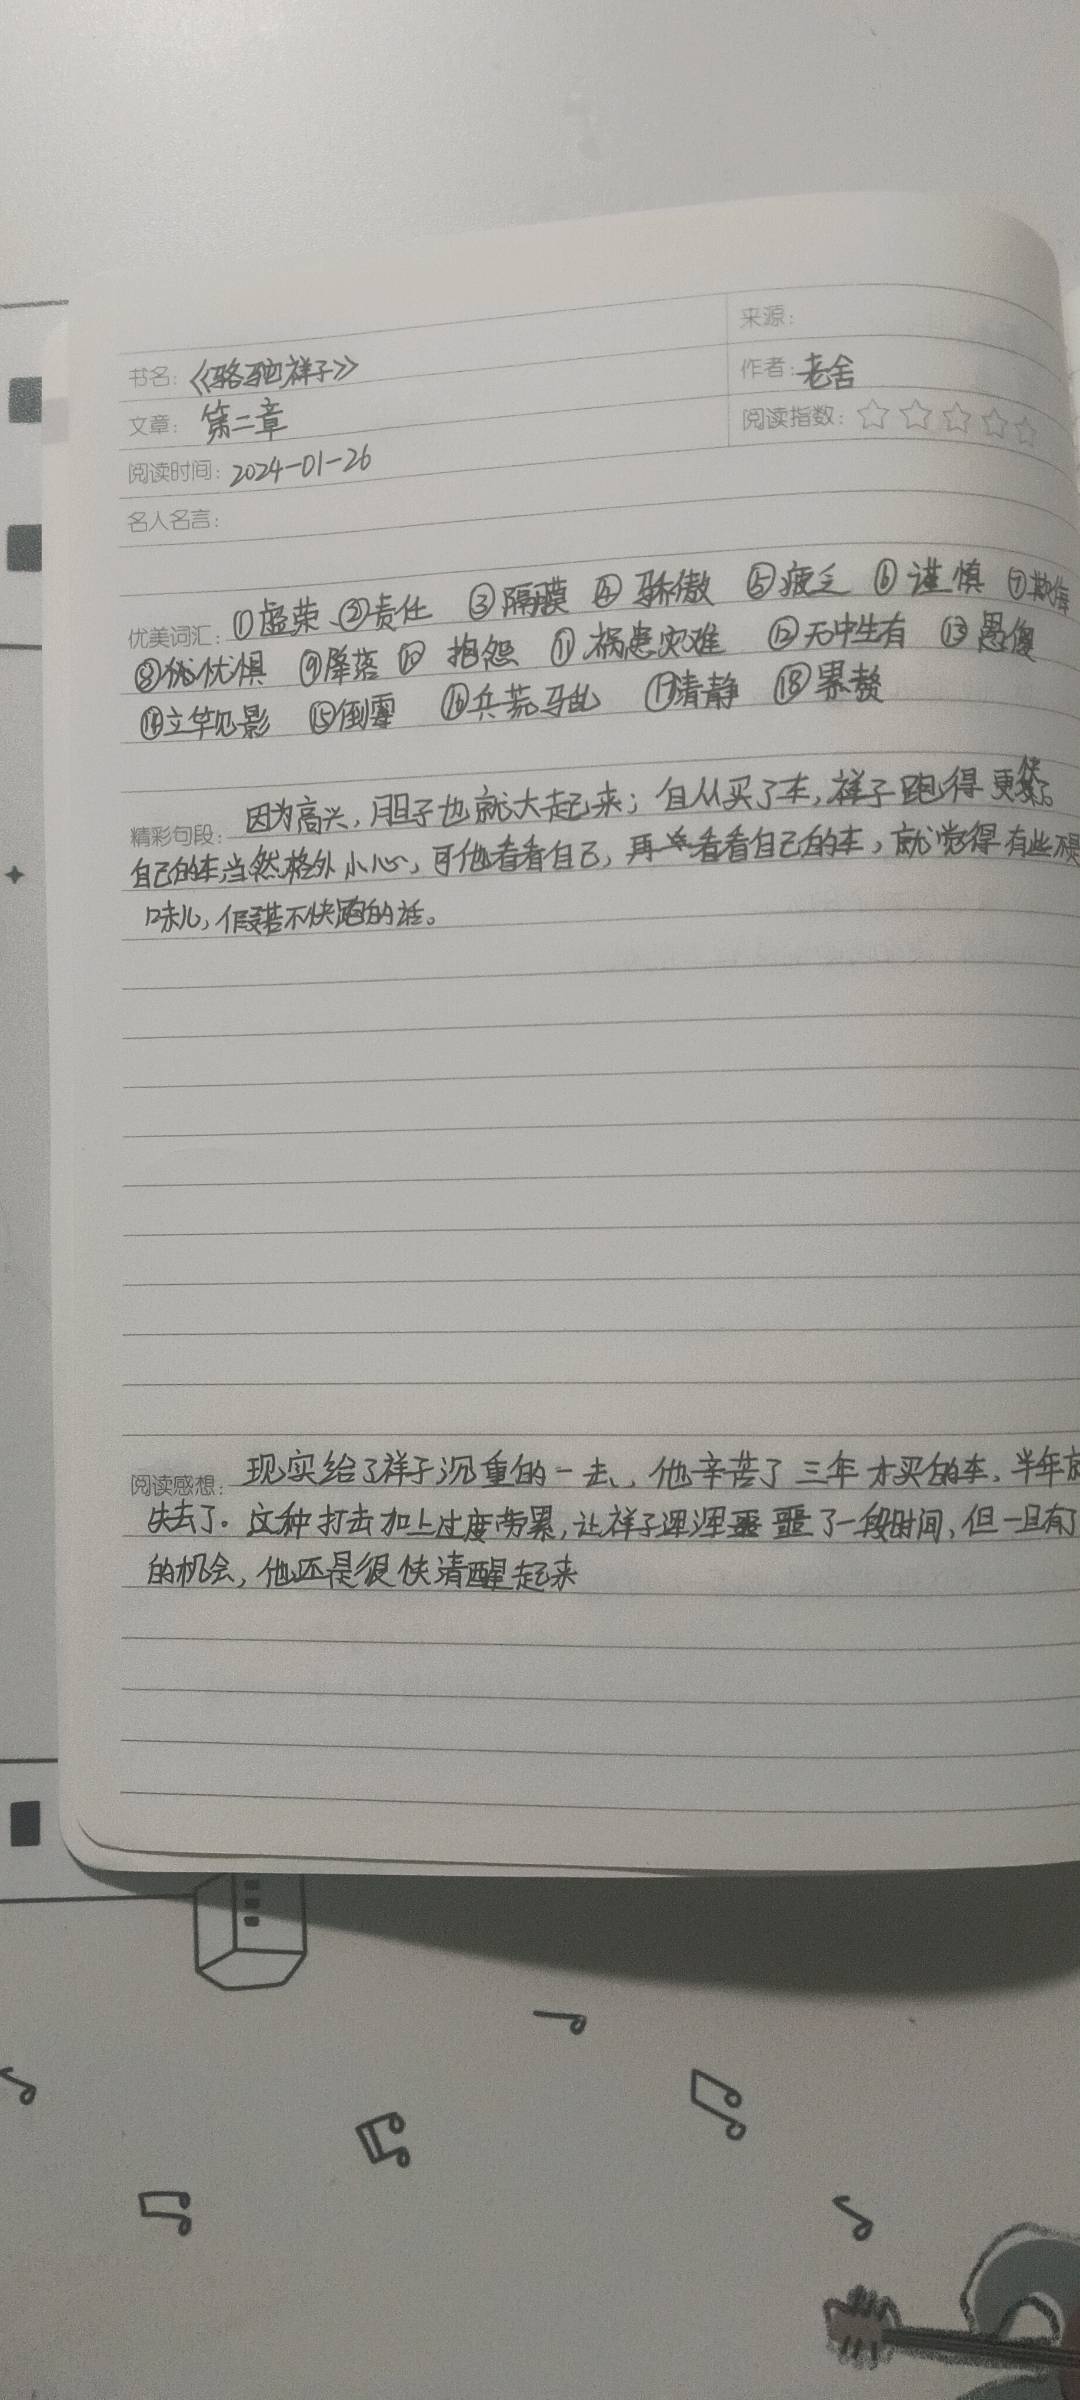 来源:
书名: 《骆驼祥子》 作者: 老舍
文章: 第二章 阅读指数: ☆☆☆☆☆
阅读时间: 2024-01-26
名人名言:
优美词汇: ①虚荣、②责任 ③隔膜 ④骄傲 ⑤疲乏 ⑥谨慎 ⑦欺侮
⑧忧惧 ⑨降落 ⑩抱怨 ⑪祸患灾难 ⑫无中生有 ⑬愚傻
⑭立竿见影 ⑮倒霉 ⑯兵荒马乱 ⑰清静 ⑱累赘
精彩句段: 因为高兴,胆子也就大起来;自从买了车,祥子跑得更快了。
自己的车,当然格外小心,可他看看自己,再看看自己的车,就觉得有些不是
味儿,假若不快跑的话。
阅读感想: 现实给了祥子沉重的一击,他辛苦了三年才买的车,半年就
失去了。这种打击加上过度劳累,让祥子浑浑噩噩了一段时间,但一旦有了
的机会,他还是很快清醒起来